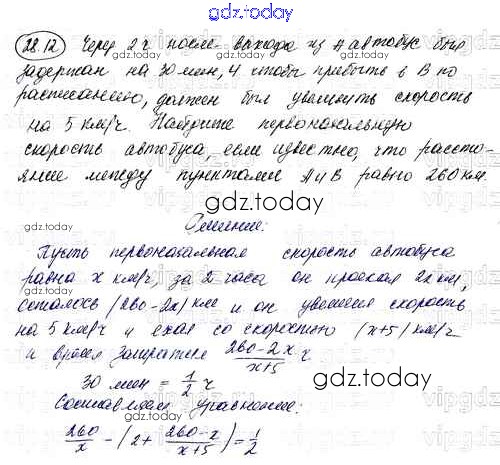 gdz.today
28.12 Через 2 ч после выхода из A автобус был
gdz.today
задержан на 30 мин, и чтобы прибыть в B по
расписанию, должен был увеличить скорость
на 5 км/ч. Найдите первоначальную
скорость автобуса, если известно, что рассто-
яние между пунктами A и B равно 260 км.
gdz.today
Решение:
Пусть первоначальная скорость автобуса
равна x км/ч, за 2 часа он проехал 2x км,
осталось (260-2x) км и он увеличил скорость
на 5 км/ч и ехал со скоростью (x+5) км/ч
и время затратил (260-2x)/(x+5) ч
30 мин = 1/2 ч
gdz.today
Составляем уравнение:
260/x - (2 + (260-x)/(x+5)) = 1/2
gdz.today